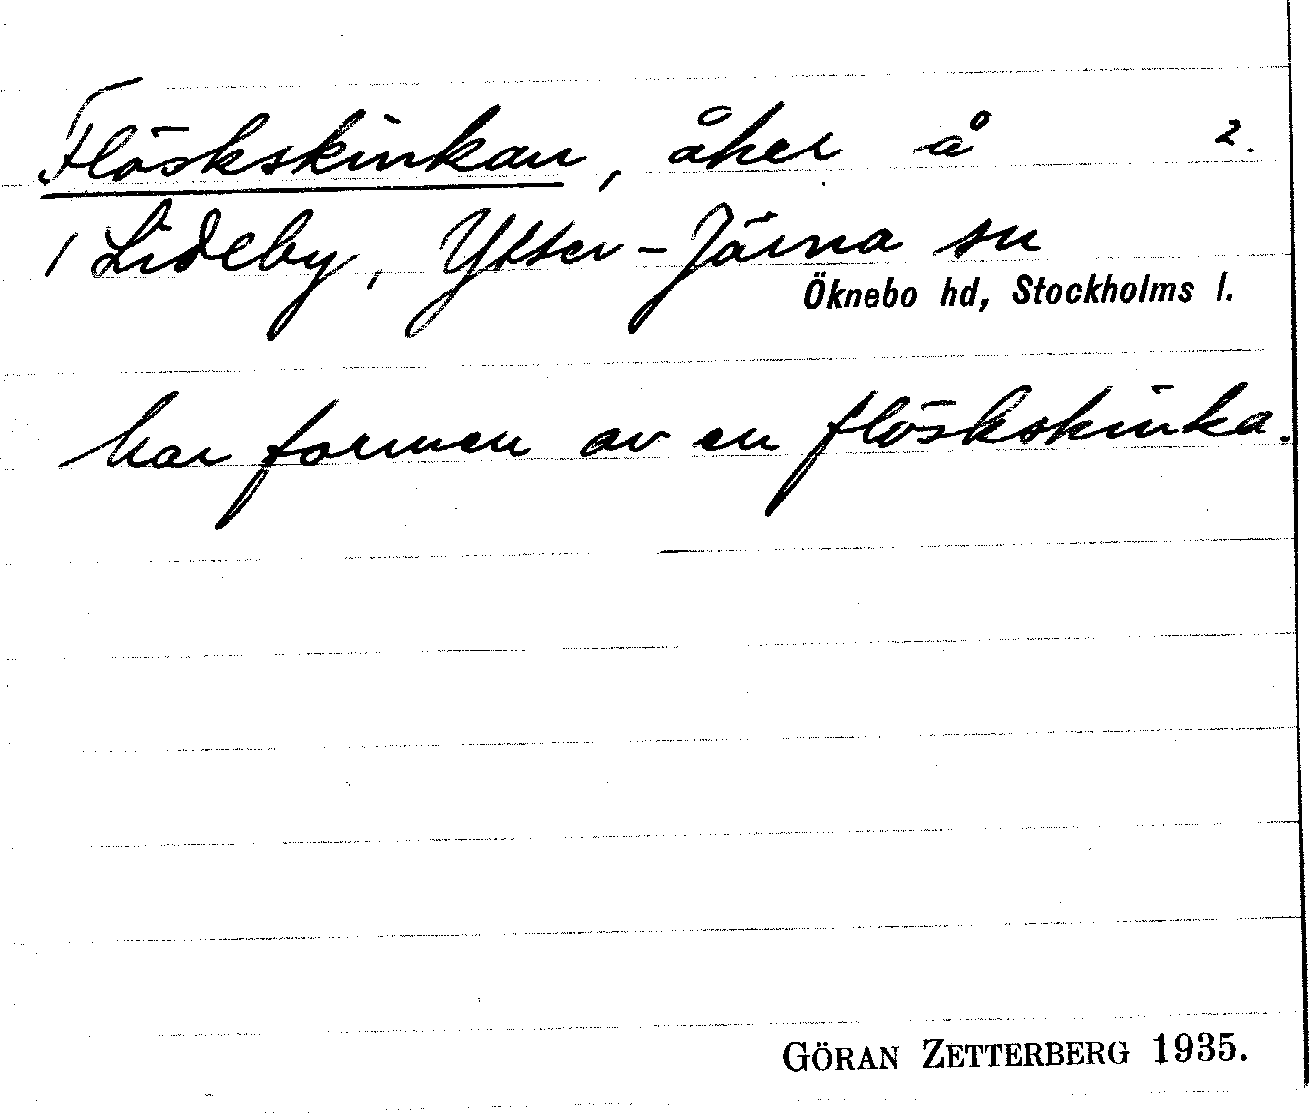 Fläskskinkan, åker å 2.
1 Lideby, Ytter-Järna sn
Öknebo hd, Stockholms l.
har formen av en fläskskinka.
GÖRAN ZETTERBERG 1935.